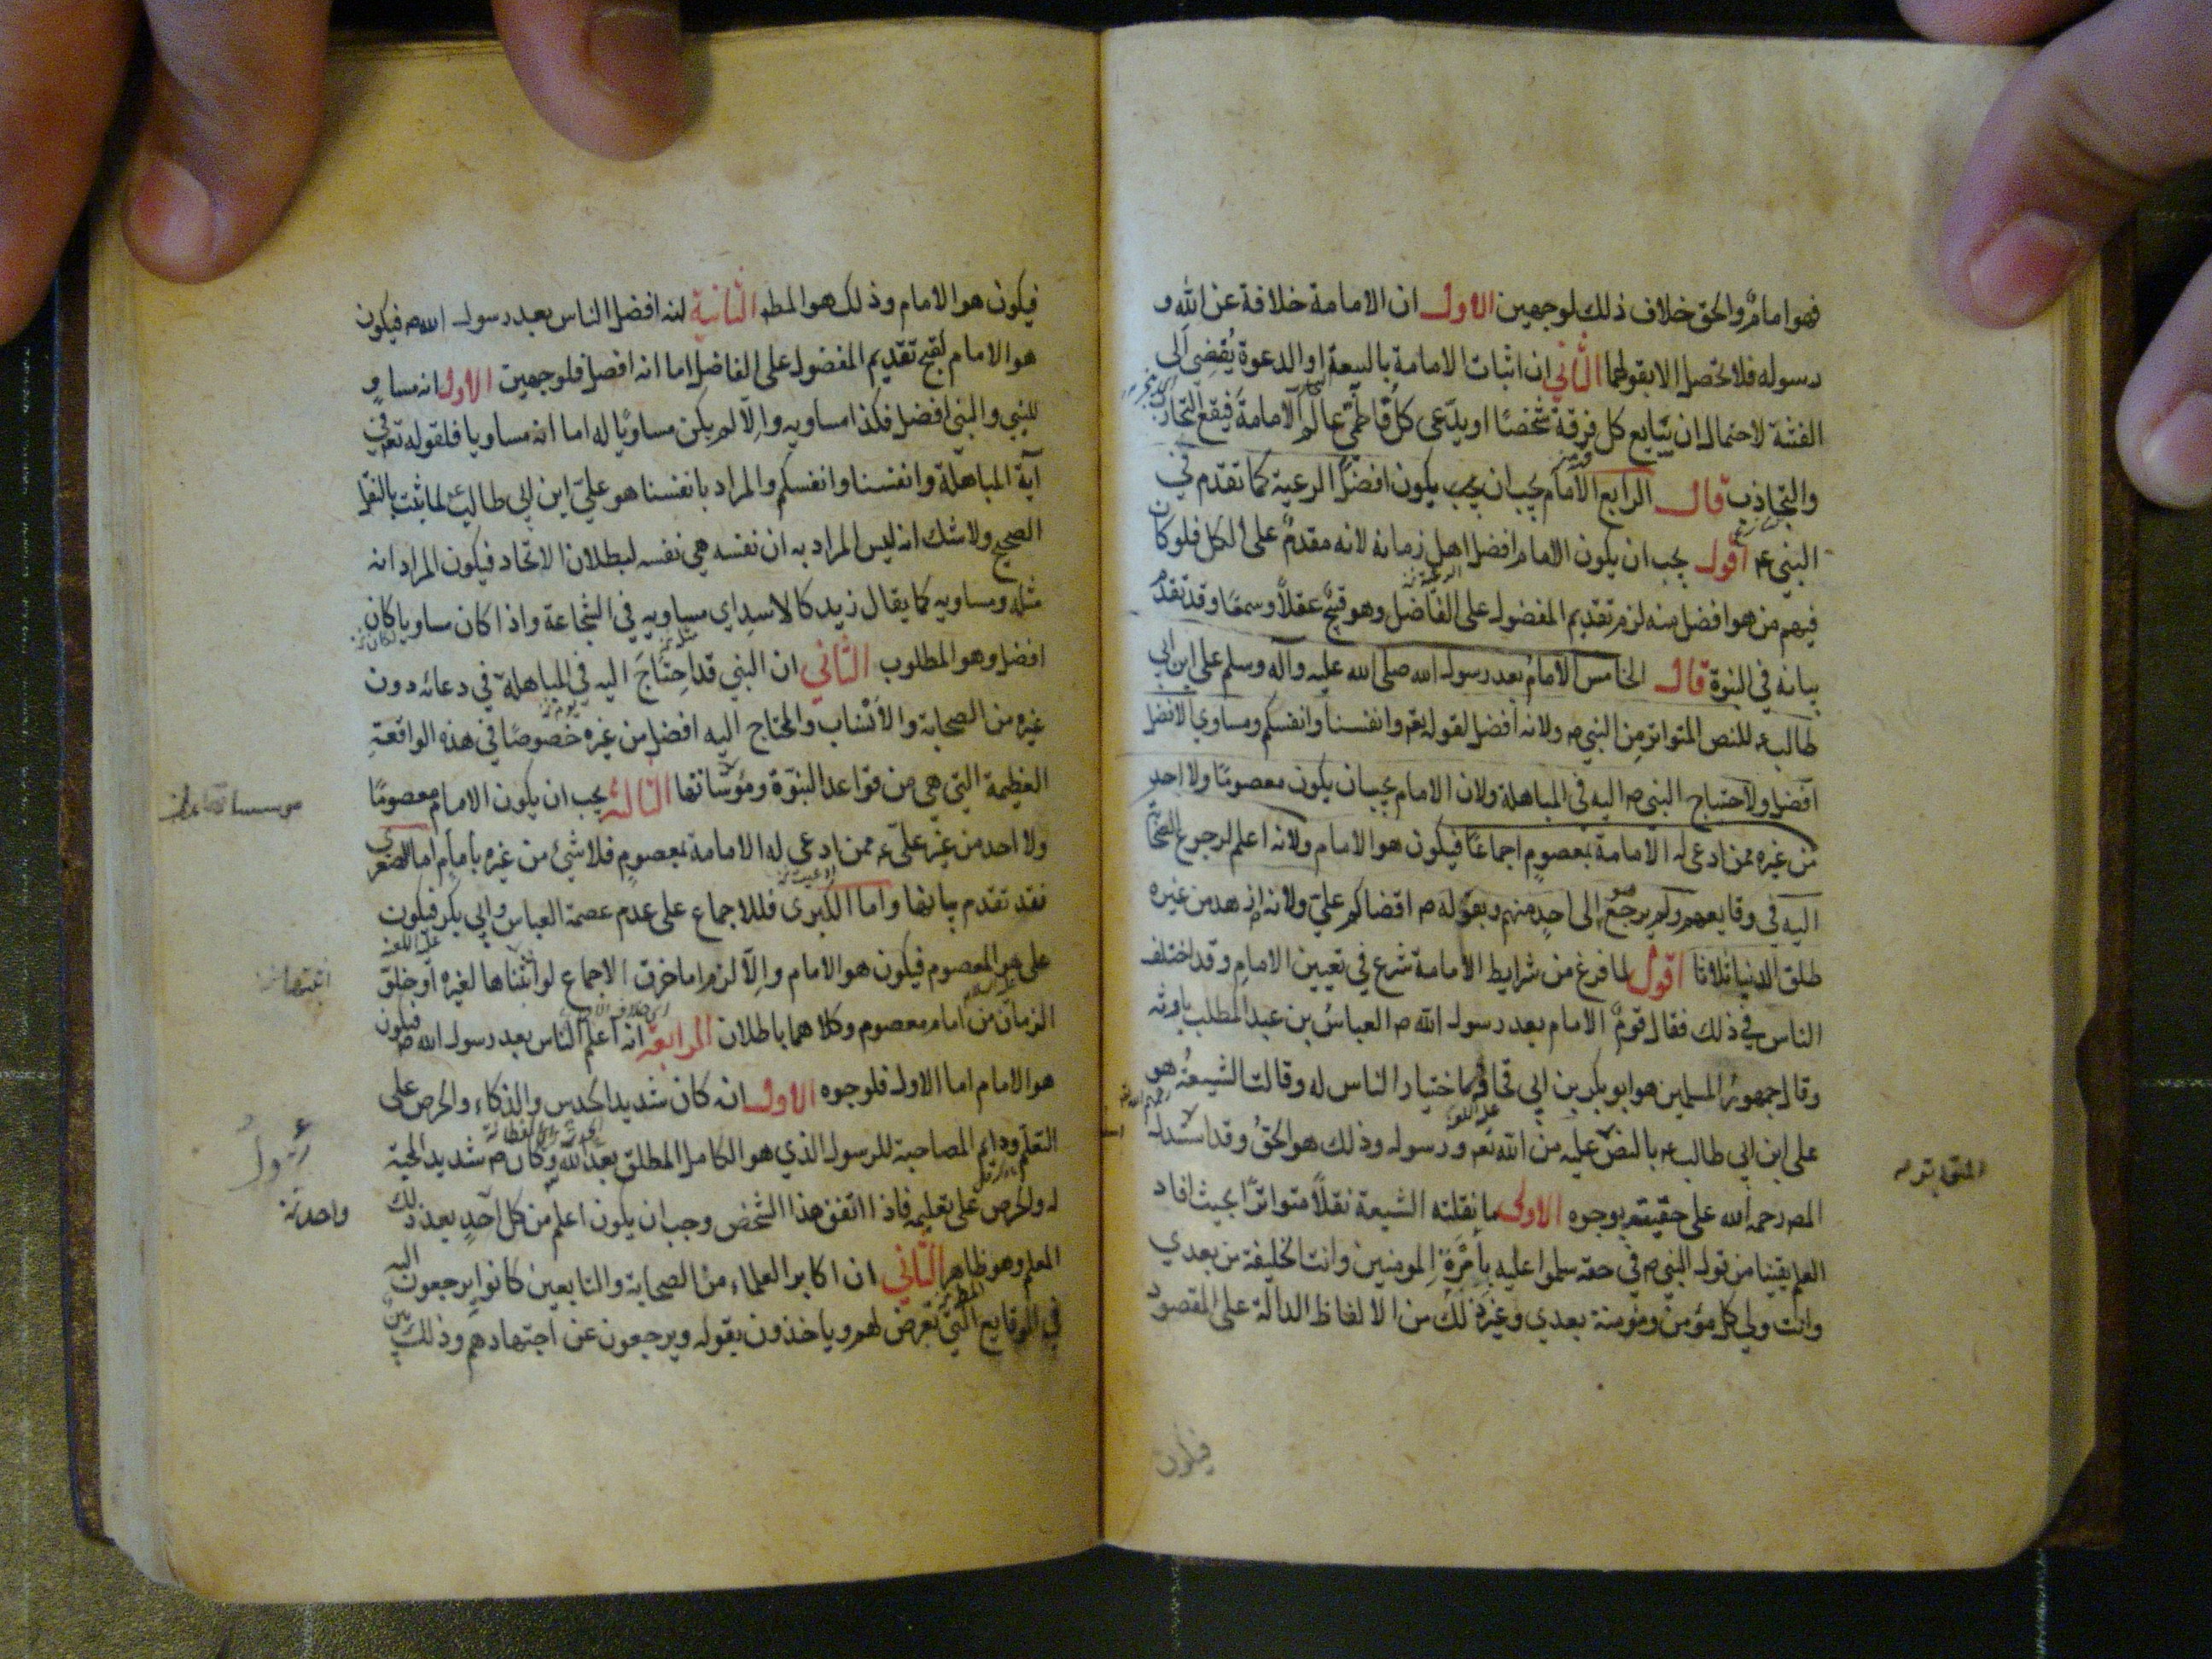 فهو امامٌ والحق خلاف ذلك لوجهين الاول ان الامامة خلافة عن الله و
رسوله فلا تحصل الا بقولهما الثاني ان اثبات الامامة بالبيعة او الدعوة يُفضي الى
الفتنة لاحتمال ان يتابع كل فرقة شخصًا او يدّعى كل فاطميّ عالم الامامة فيقع التحارب
والتجاذب قال الرابع الامام يجب ان يكون افضل الرعية كما تقدم في
النبي ع اقول يجب ان يكون الامام افضل اهل زمانه لانه مقدمٌ على الكل فلو كان
فيهم من هو افضل منه لزم تقديم المفضول على الفاضل وهو قبيح عقلًا وسمعًا وقد تقدم
بيانه في النبوة قال الخامس الامام بعد رسول الله صلى الله عليه وآله وسلم علي ابن ابي
طالب ع للنص المتواتر من النبي ص ولانه افضل لقوله تعم وانفسنا وانفسكم ومساوي الافضل
افضل ولاحتياج النبي ص اليه في المباهلة ولان الامام يجب ان يكون معصومًا ولا احد
من غيره ممن ادعى له الامامة بمعصومٍ اجماعًا فيكون هو الامام ولانه اعلم لرجوع الصحابة
اليه في وقايعهم ولم يرجع هو الى احدٍ منهم وبقوله ص اقضاكم عليّ ولانه ازهد من غيره
طلق الدنيا ثلاثا اقول لما فرغ من شرايط الامامة شرع في تعيين الامام وقد اختلف
الناس في ذلك فقال قومٌ الامام بعد رسول الله ص العباس بن عبد المطلب بارثه
وقال جمهورُ المسلمين هو ابو بكر بن ابي قحافة باختيار الناس له وقالت الشيعةُ هو
علي ابن ابي طالب ع بالنص عليه من الله تعم ورسوله وذلك هو الحقُ وقد استدل
المص رحمه الله على حقيته بوجوه الاول ما نقلته الشيعة نقلًا متواترًا بحيث افاد
العلم يقينا من قول النبي ص في حقه سلموا عليه بإمْرَةِ المومنين وانت الخليفة من بعدي
وانت ولي كل مؤمن ومؤمنة بعدي وغير ذلك من الالفاظ الدالة على المقصود
فيكون
فيكون هو الامام وذلك هو المطم الثانية انه افضل الناس بعد رسول الله ص فيكون
هو الامام لقبح تقديم المفضول على الفاضل اما انه افضل فلوجهين الاول انه مساوٍ
للنبي والنبي افضل فكذا مساويه والّا لم يكن مساويًا له اما انه مساويا فلقوله تعم في
آية المباهلة وانفسنا وانفسكم والمراد بانفسنا هو عليّ ابن ابي طالب ع لما ثبت بالنقل
الصحيح ولا شك انه ليس المراد به ان نفسه هي نفسه لبطلان الاتحاد فيكون المراد انه
مثله ومساويه كما يقال زيد كالاسد اي مساويه في الشجاعة واذا كان مساويا كان
افضل وهو المطلوب الثاني ان النبي قد احتاجَ اليه في المباهلة في دعائه دون
غيره من الصحابة والأنساب والمحتاج اليه افضل من غيره خصوصًا في هذه الواقعةِ
العظيمة التي هي من قواعد النبوّة ومؤسّساتها الثالثة يجب ان يكون الامام معصومًا
ولا احد من غير عليّ ع ممن ادعي له الامامة بمعصومٍ فلا شئ من غيره بأمامٍ اما الصغرى
فقد تقدم بيانها واما الكبرى فللاجماع على عدم عصمة العباس وابي بكر فيكون
علي هو المعصوم فيكون هو الامام والّا لزم اما خرق الاجماع لو اثبتناها لغيره او خلق
الزمان من امام معصوم وكلاهما باطلان الرابعة انه اعلم الناس بعد رسول الله ص فيكون
هو الامام اما الاول فلوجوه الاول انه كان شديد الحدس والذكاء والحرص على
التعلم ودايم المصاحبة للرسول الذي هو الكامل المطلق بعد الله وكان ص شديد المحبة
له والحرص على تعليمه فاذا اتفق هذا الشخص وجب ان يكون اعلم من كل احدٍ بعد ذلك
المعلم وهو ظاهر الثاني ان اكابر العلماء من الصحابة والتابعين كانوا يرجعون اليه
في الوقايع التي تعرض لهم وياخذون بقوله ويرجعون عن اجتهادهم وذلك بين
واحد نه